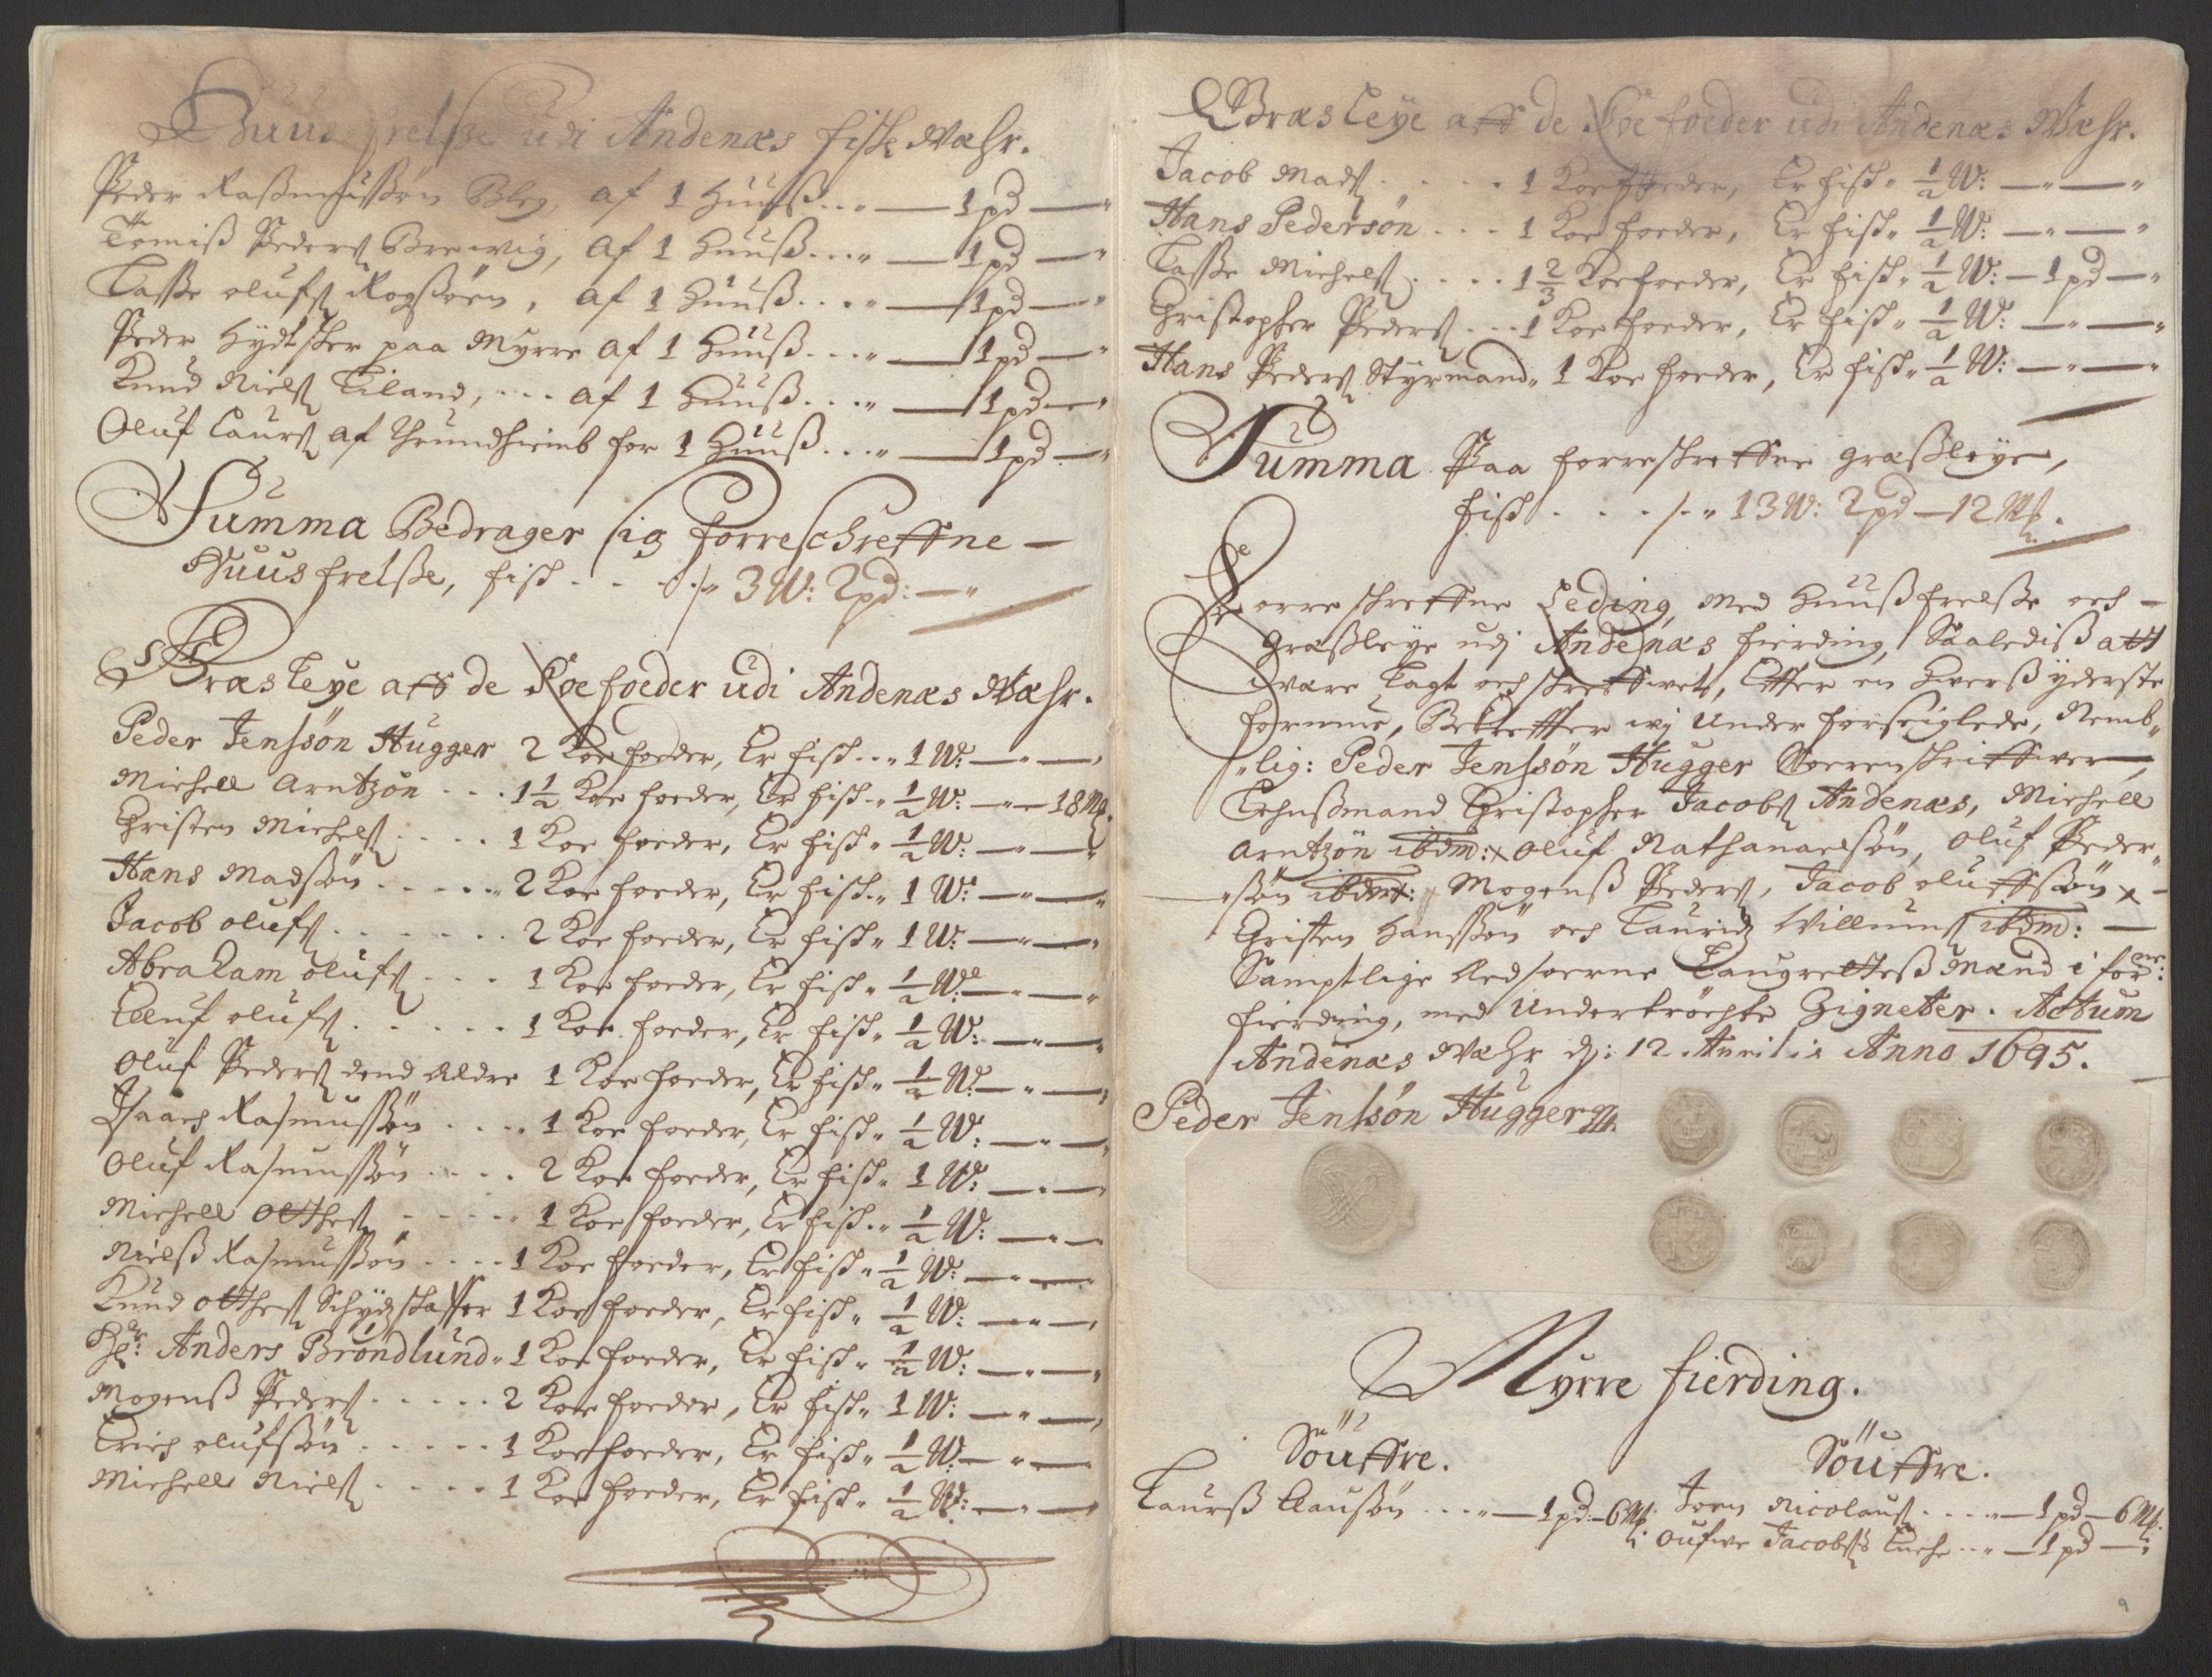 Huus frelsse udi Andenæs fiske Wæhr.
Peder Rassmussøn Bleg, af 1 Huuss...„ — 1 pd — „
Tomiss Peders Brewig, af 1 Huuss...„ — 1 pd — „
Lasse olufs Rogssøen, af 1 Huuss...„ — 1 pd — „
Peder Hydtsker paa Myrre af 1 Huuss...„ — 1 pd — „
Knud Niels Eiland, ... af 1 Huuss...„ — 1 pd — „
Oluf Laurs af Thrundhiemb for 1 Huuss...„ — 1 pd — „
Summa Bedrager sig forreschreffne —
Huus frelsse, fisk . . . ./. „ 3 W: 2 pd: — „
Græs Leye aff de Koe foeder udi Andenæs Wæhr.
Peder Jenssøn Hugger 2 Koe foeder, Er fisk ..„ 1 W: — „ —
Michell Arntzøn . . . 1½ Koe foeder, Er fisk „ ½ W: — „ — 18 Mk.
Christen Michels . . . . 1 Koe foeder, Er fisk „ ½ W: — „ —
Hans Madssøn . . . . . „ 2 Koe foeder, Er fisk „ 1 W: — „ —
Jacob olufs . . . . . . . 2 Koe foeder, Er fisk „ 1 W: — „ —
Abraham olufs . . . 1 Koe foeder, Er fisk „ ½ W: — „ —
Elluf olufs . . . . . . 1 Koe foeder, Er fisk „ ½ W: — „ —
Oluf Peders dend Eldre 1 Koe foeder, Er fisk „ ½ W: — „ —
Isaach Rasmussøn . . . . 1 Koe foeder, Er fisk „ ½ W: — „ —
Oluf Rasmussøn . . . . 2 Koe foeder, Er fisk „ 1 W: — „ —
Michell Otthes . . . . . 1 Koe foeder, Er fisk „ ½ W: — „ —
Nielss Rasmussøn . . . . 1 Koe foeder, Er fisk „ ½ W: — „ —
Knud otthes Schydtskaffer 1 Koe foeder, Er fisk „ ½ W: — „ —
Hr: Anders Brøndlund „ 1 Koe foeder, Er fisk „ ½ W: — „ —
Mogenss Peders . . . . . 2 Koe foeder, Er fisk „ 1 W: — „ —
Erich olufssøn . . . . . 1 Koe foeder, Er fisk „ ½ W: — „ —
Michell Niels . . . . 1 Koe foeder, Er fisk „ ½ W: — „ —
Græs Leye aff de Koe foeder udi Andenæs Wæhr.
Jacob Mads . . . . . 1 Koe foeder, Er fisk „ ½ W: — „ — „
Hans Pedersøn . . . 1 Koe foeder, Er fisk „ ½ W: — „ — „
Lasse Michels . . . . 1⅔ Koe foeder, Er fisk „ ½ W: — 1 pd — „
Christopher Peders . . . 1 Koe foeder, Er fisk „ ½ W: — „ — „
Hans Peders Styrmand „ 1 Koe foeder, Er fisk „ ½ W: — „ — „
Summa Paa forreschreffne græssleye,
fisk . . . ./. „ 13 W: 2 pd — 12 Mk.
Forreschreffne Leding med Huussfrelsse och —
græssleye udj Andenæs fierding, Saalediss att
være Lagt och schreffwet, Effter en Hverss yderste
formue, Bekreffter wj Under forseiglede, Nemb„
„lig: Peder Jenssøn Hugger Soerenskriffwer,
Lehnssmand Christopher Jacobs Andenæs, Michell
Arntzøn ibdm: x Oluf Nathanaelssøn, Oluf Peder„
„søn ibdm: Mogenss Peders, Jacob oluffssøn x —
Christen Hanssøn och Lauridz Willums ibdm: —
Samptlige Edsoerne Laugrettess mænd i forne:
fierding, med Undertrøchte Zigneter. Actum
Andenæs Wæhr dj: 12 Aprilis Anno 1695.
Peder Jenssøn Hugger
Myrre fierding.
Söuffre. Söuffre.
Laurss Claussøn . . . . „ — 1 pd: — 6 Mk: Joen Nicolaus . . . . „ — 1 pd — 6 Mk:
oufwe Jacobss Enche . . „ — 1 pd — „
9